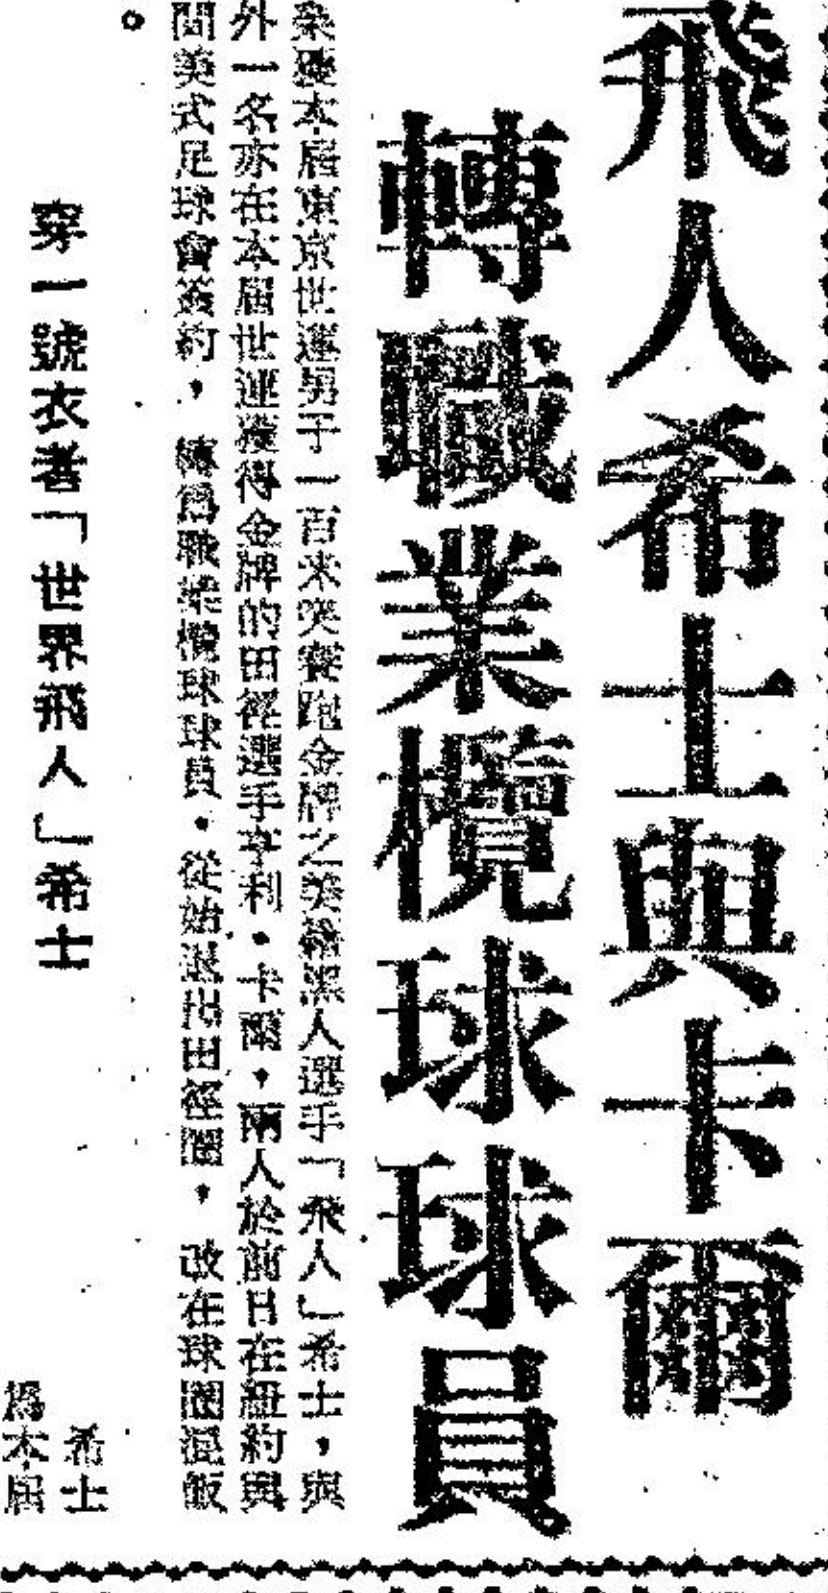 飛人希士與卡爾
轉職業欖球球員
榮膺本屆東京世運男子一百米決賽跑金牌之美籍黑人選手「飛人」希士，與
外一名亦在本屆世運獲得金牌的田徑選手亨利・卡爾，兩人於前日在紐約與
間美式足球會簽約，轉爲職業欖球球員・從始退出田徑圈，改在球圈混飯
。
穿一號衣者「世界飛人」希士
希士
爲本屆